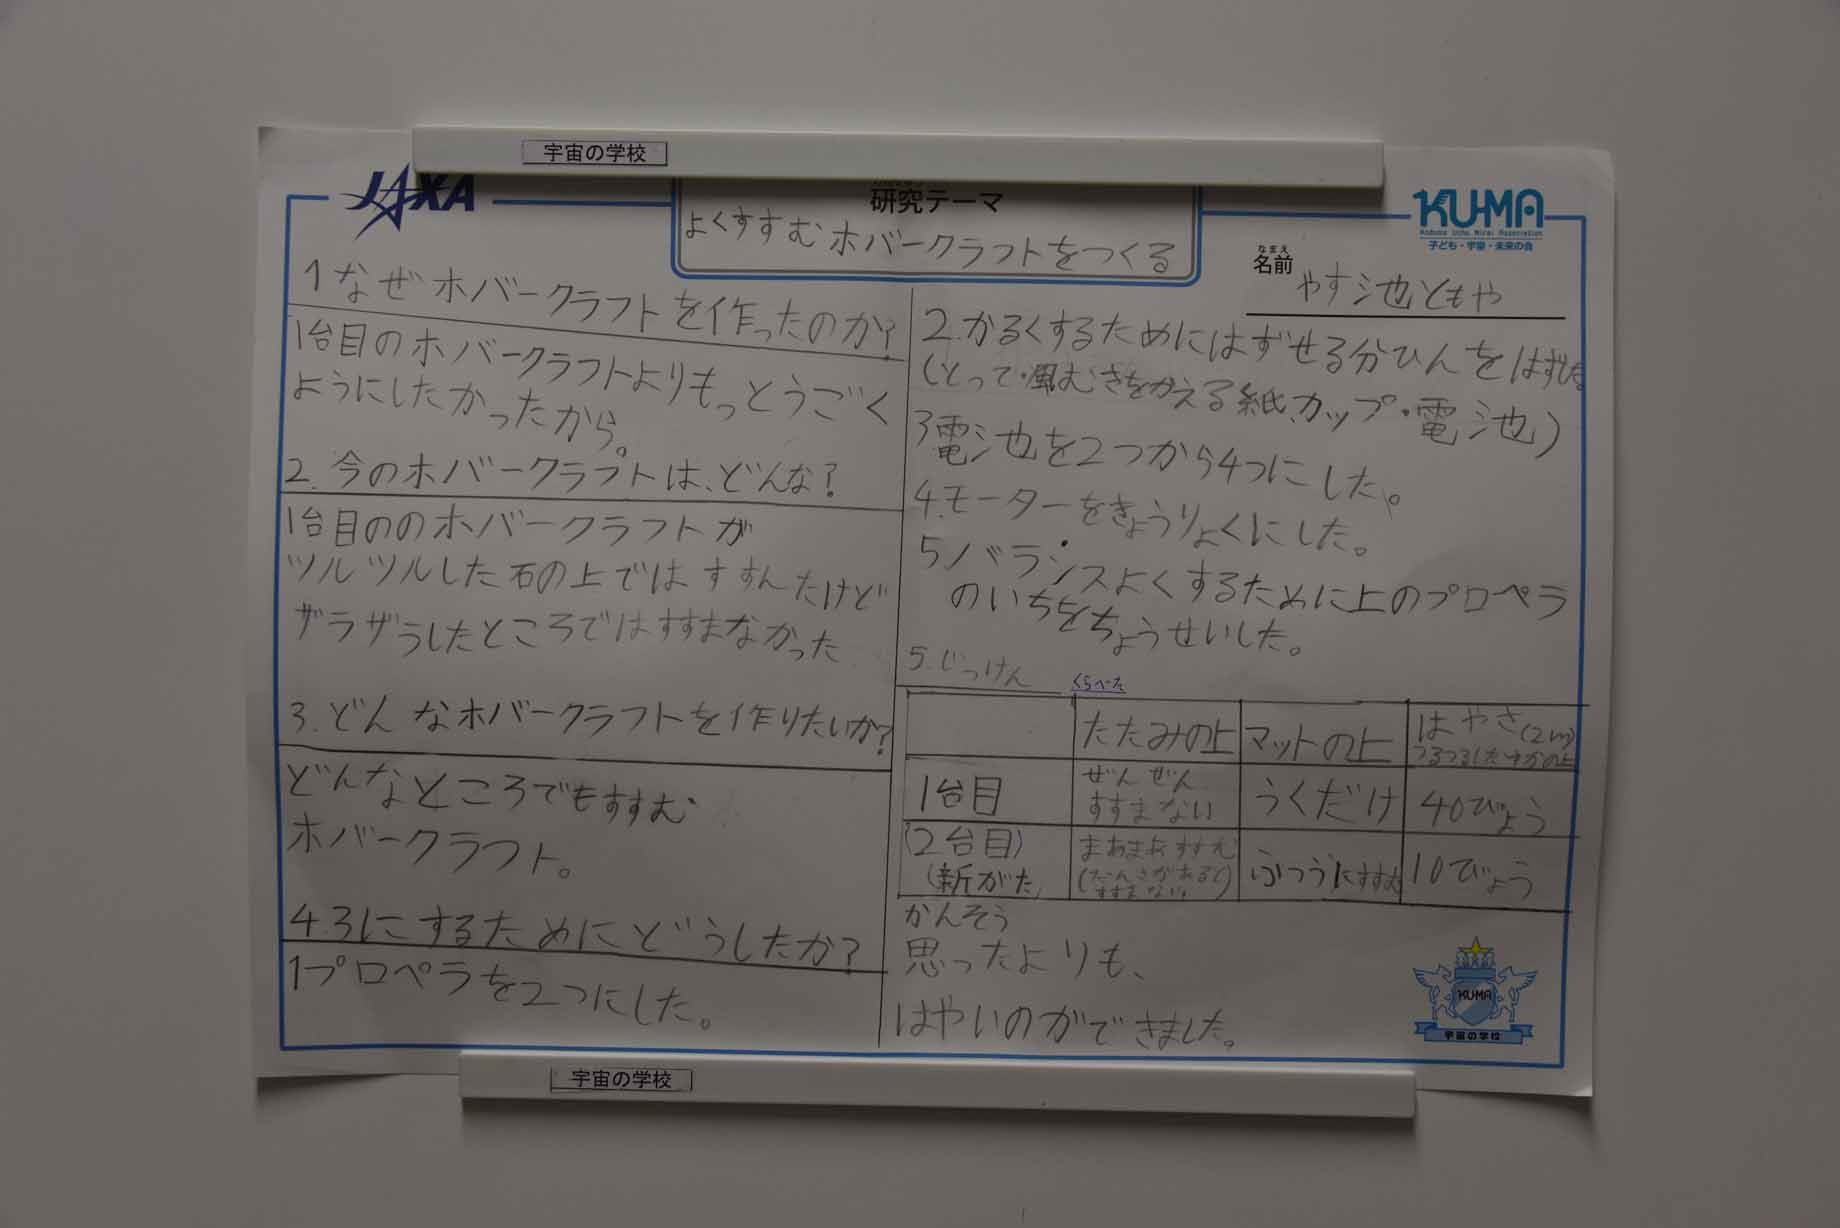 宇宙の学校
JAXA
研究テーマ
よくすすむホバークラフトをつくる
KU-MA
Kodomo Uchu Mirai Association
子ども・宇宙・未来の会
なまえ
名前 やす池ともや
1なぜホバークラフトを作ったのか?
1台目のホバークラフトよりもっとうごく
ようにしたかったから。
2.今のホバークラフトは、どんな?
1台目ののホバークラフトが
ツルツルした石の上ではすすんだけど
ザラザラしたところではすすまなかった
3.どんなホバークラフトを作りたいか?
どんなところでもすすむ
ホバークラフト。
4.3にするためにどうしたか?
1プロペラを2つにした。
2.かるくするためにはずせる分ひんをはずした
(とって・風むきをかえる紙、カップ・電池)
3電池を2つから4つにした。
4.モーターをきょうりょくにした。
5バランスよくするために上のプロペラ
のいちをちょうせいした。
5.じっけん
くらべた
たたみの上 マットの上 はやさ(2m)
つるつるしたゆかの上
1台目 ぜんぜん
すすまない うくだけ 40びょう
(2台目)
(新がた) まあまあすすむ
(だんさがあると)
すすまない。 ふつうにすすむ 10びょう
かんそう
思ったよりも、
はやいのができました。
KUMA
宇宙の学校
宇宙の学校